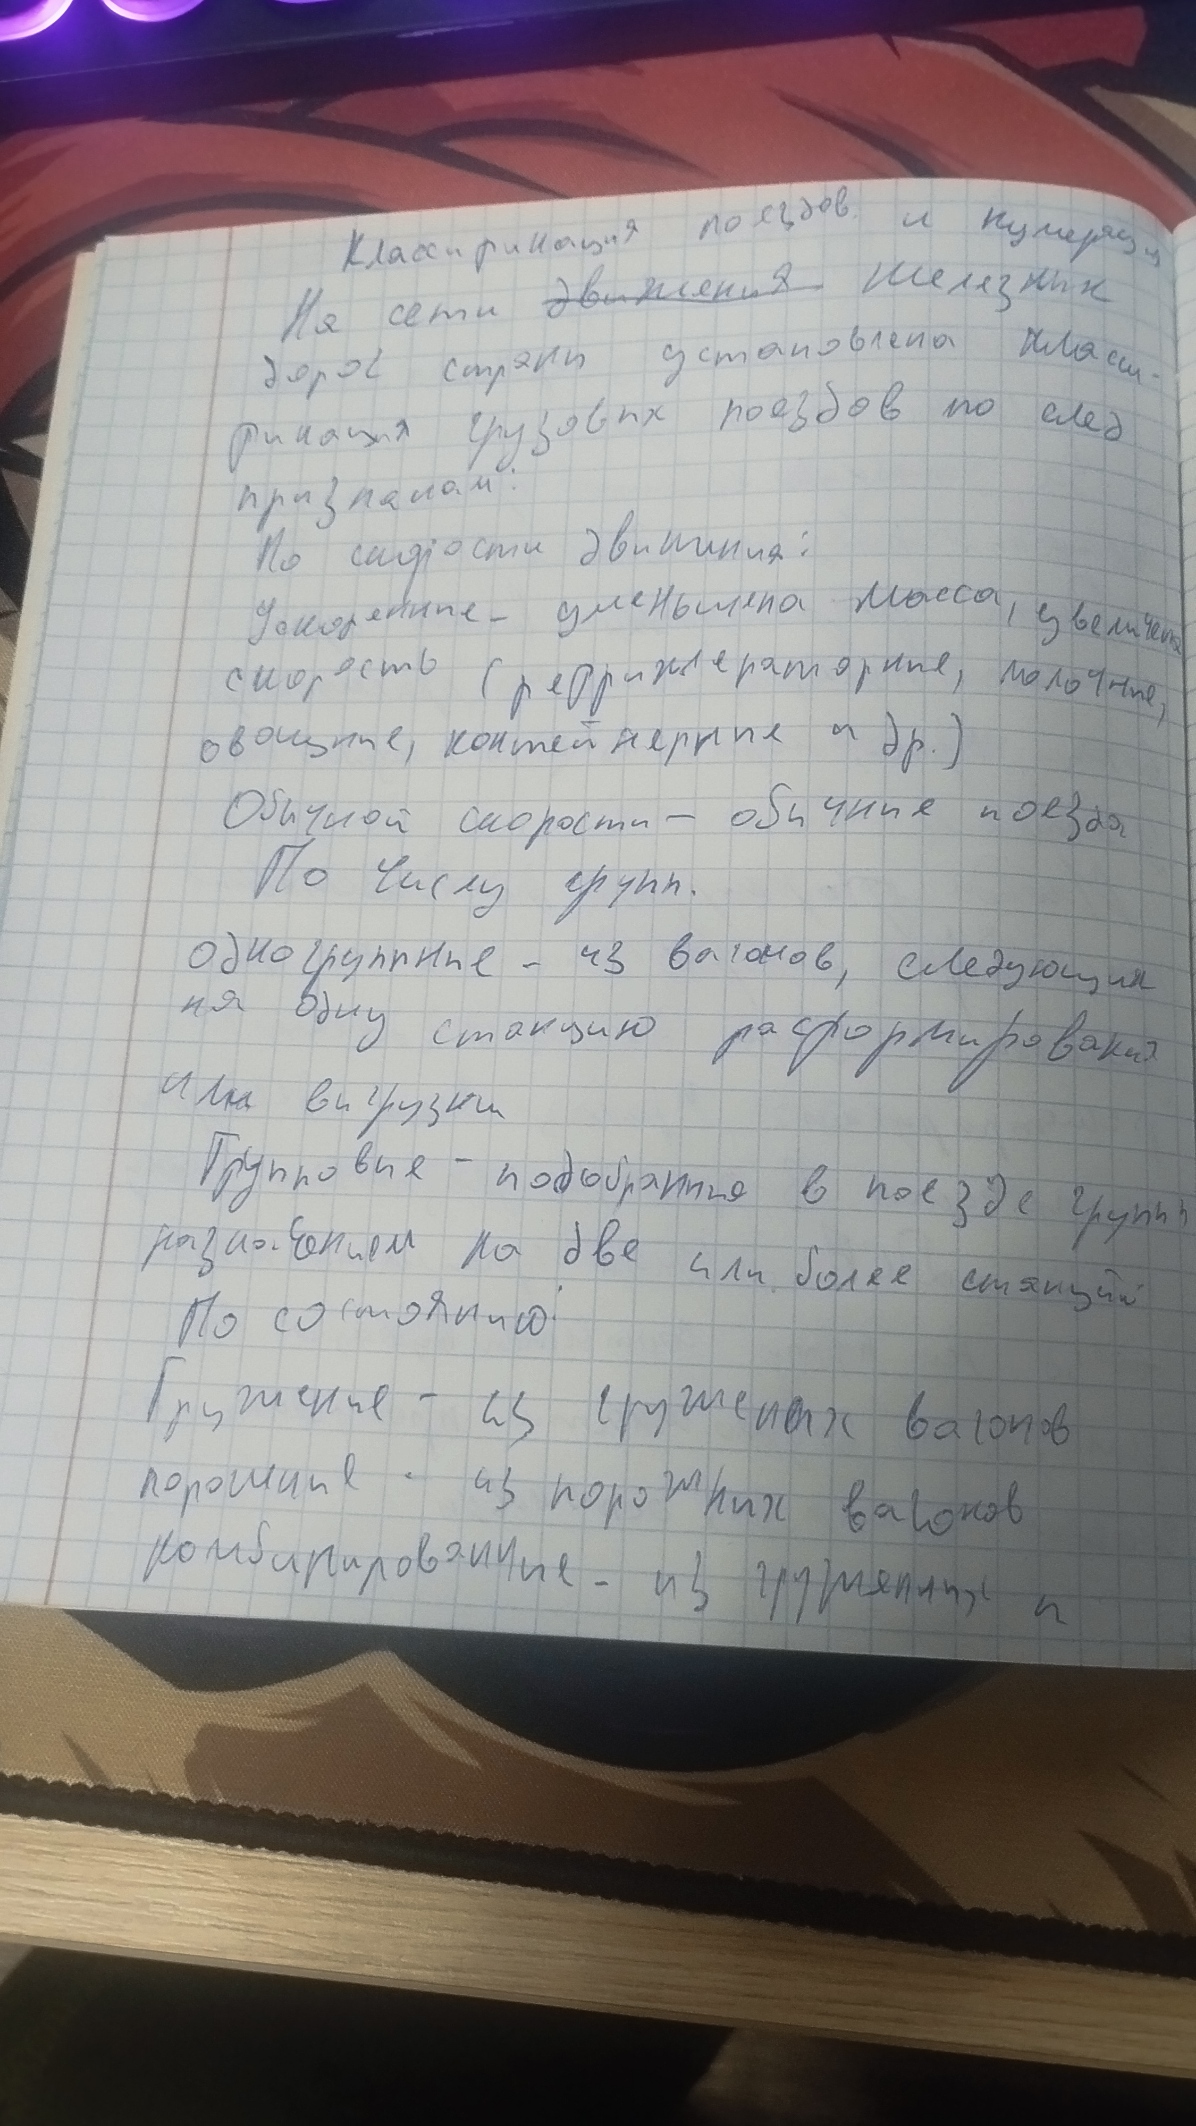 Классификация поездов и нумерация
На сети движения железных
дорог страны установлена класси-
фикация грузовых поездов по след
признакам:
По скорости движения:
Ускоренные - уменьшена масса, увеличена
скорость (рефрижераторные, молочные,
овощные, контейнерные и др.)
Обычной скорости - обычные поезда
По числу групп.
одногруппные - из вагонов, следующих
на одну станцию расформирования
или выгрузки
Групповые - подобранные в поезде групп
назначением на две или более станций
По состоянию:
Груженые - из груженых вагонов
порожние - из порожних вагонов
комбинированные - из груженых и